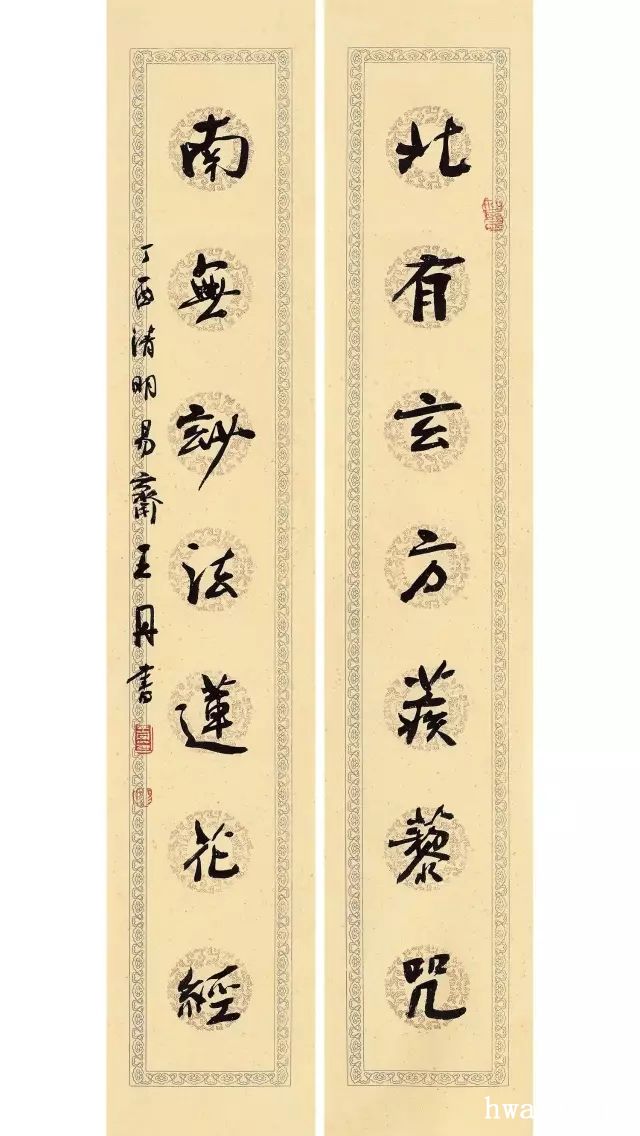 北有玄方蒺藜咒
南無玅法蓮花經
丁酉清明易齋王丹書
hwa